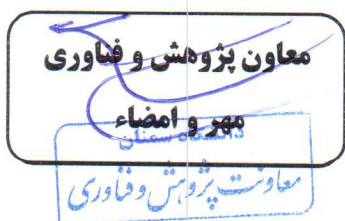 معاون پژوهش و فناوری
مهر و امضاء
دانشگاه سمنان
معاونت پژوهش و فناوری